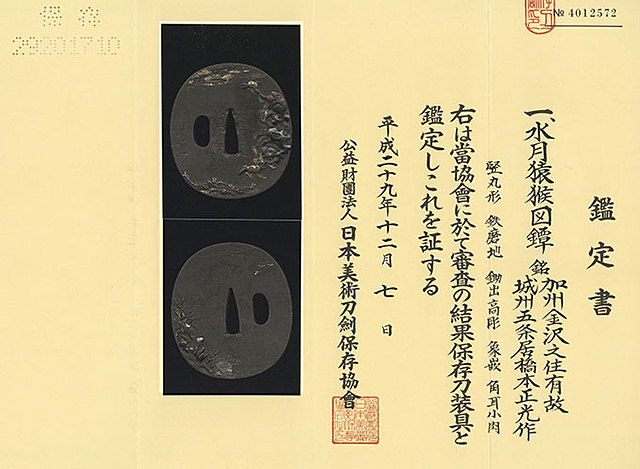 保存
29201710
№ 4012572
鑑定書
一、水月猿猴図鐔 銘 加州金沢之住有故
城州五条居橋本正光作
竪丸形 鉄磨地 鋤出高彫 象嵌 角耳小肉
右は當協會に於て審査の結果保存刀装具と
鑑定しこれを証する
平成二十九年十二月七日
公益財團法人 日本美術刀劍保存協會